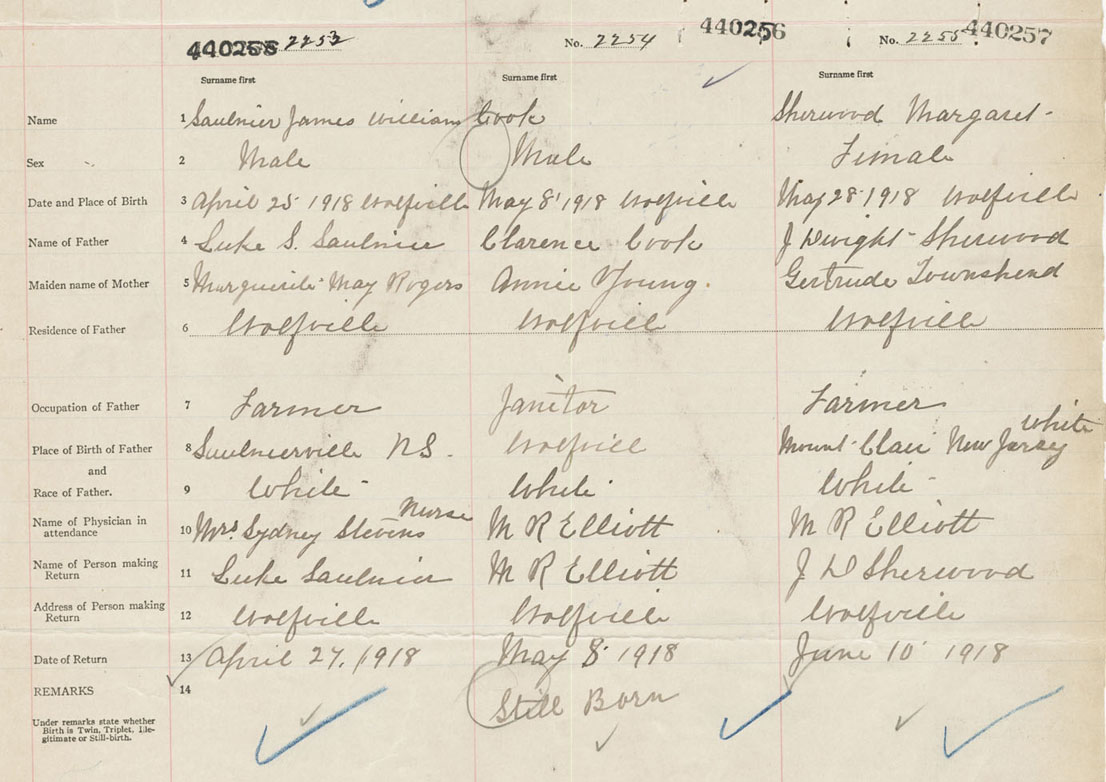 2253 No. 2254 440256 No. 2255 440257
Surname first Surname first Surname first
Name 1 Saulnier James William Cook Sherwood Margaret
Sex 2 Male Male Female
Date and Place of Birth 3 April 25 1918 Wolfville May 8 1918 Wolfville May 28 1918 Wolfville
Name of Father 4 Luke S. Saulnier Clarence Cook J Dwight Sherwood
Maiden name of Mother 5 Marguerite May Rogers Annie Young. Gertrude Townshend
Residence of Father 6 Wolfville Wolfville Wolfville
Occupation of Father 7 Farmer Janitor Farmer
white
Place of Birth of Father 8 Saulnierville NS. Wolfvill Mount Clair New Jersey
and
Race of Father. 9 White White White
Nurse
Name of Physician in
attendance 10 Mrs. Sydney Stevens M R Elliott M R Elliott
Name of Person making
Return 11 Luke Saulnier M R Elliott J D Sherwood
Address of Person making
Return 12 Wolfville Wolfville Wolfville
Date of Return 13 April 27, 1918 May 8 1918 June 10 1918
REMARKS 14 Still Born
Under remarks state whether
Birth is Twin, Triplet, Ille-
gitimate or Still-birth.